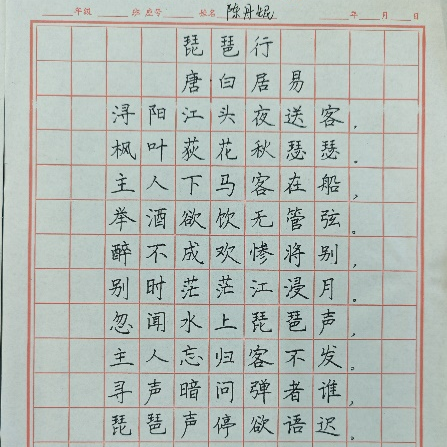 年级 班 座号 姓名 陈丹妮 年 月 日
琵琶行
唐白居易
浔阳江头夜送客，
枫叶荻花秋瑟瑟。
主人下马客在船，
举酒欲饮无管弦。
醉不成欢惨将别，
别时茫茫江浸月。
忽闻水上琵琶声，
主人忘归客不发。
寻声暗问弹者谁，
琵琶声停欲语迟。